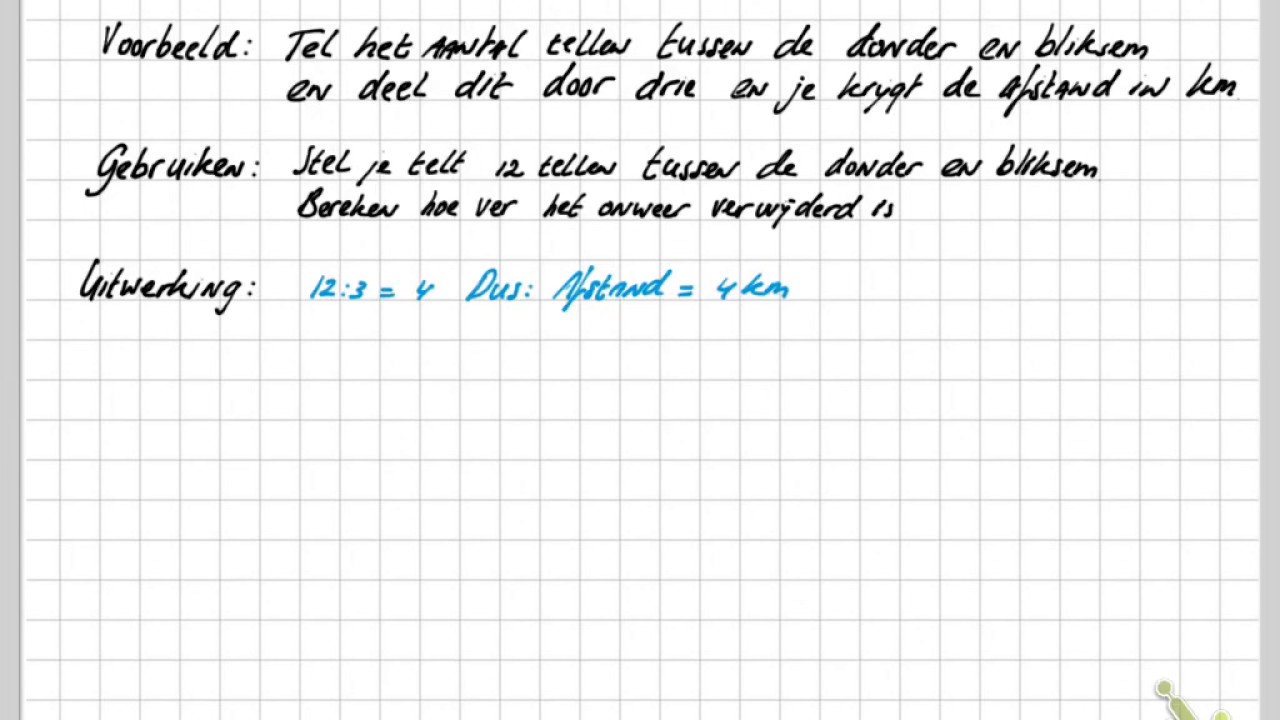 Voorbeeld: Tel het aantal tellen tussen de donder en bliksem
en deel dit door drie en je krijgt de afstand in km
Gebruiken: Stel je telt 12 tellen tussen de donder en bliksem
Bereken hoe ver het onweer verwijderd is
Uitwerking: 12:3 = 4 Dus: Afstand = 4 km